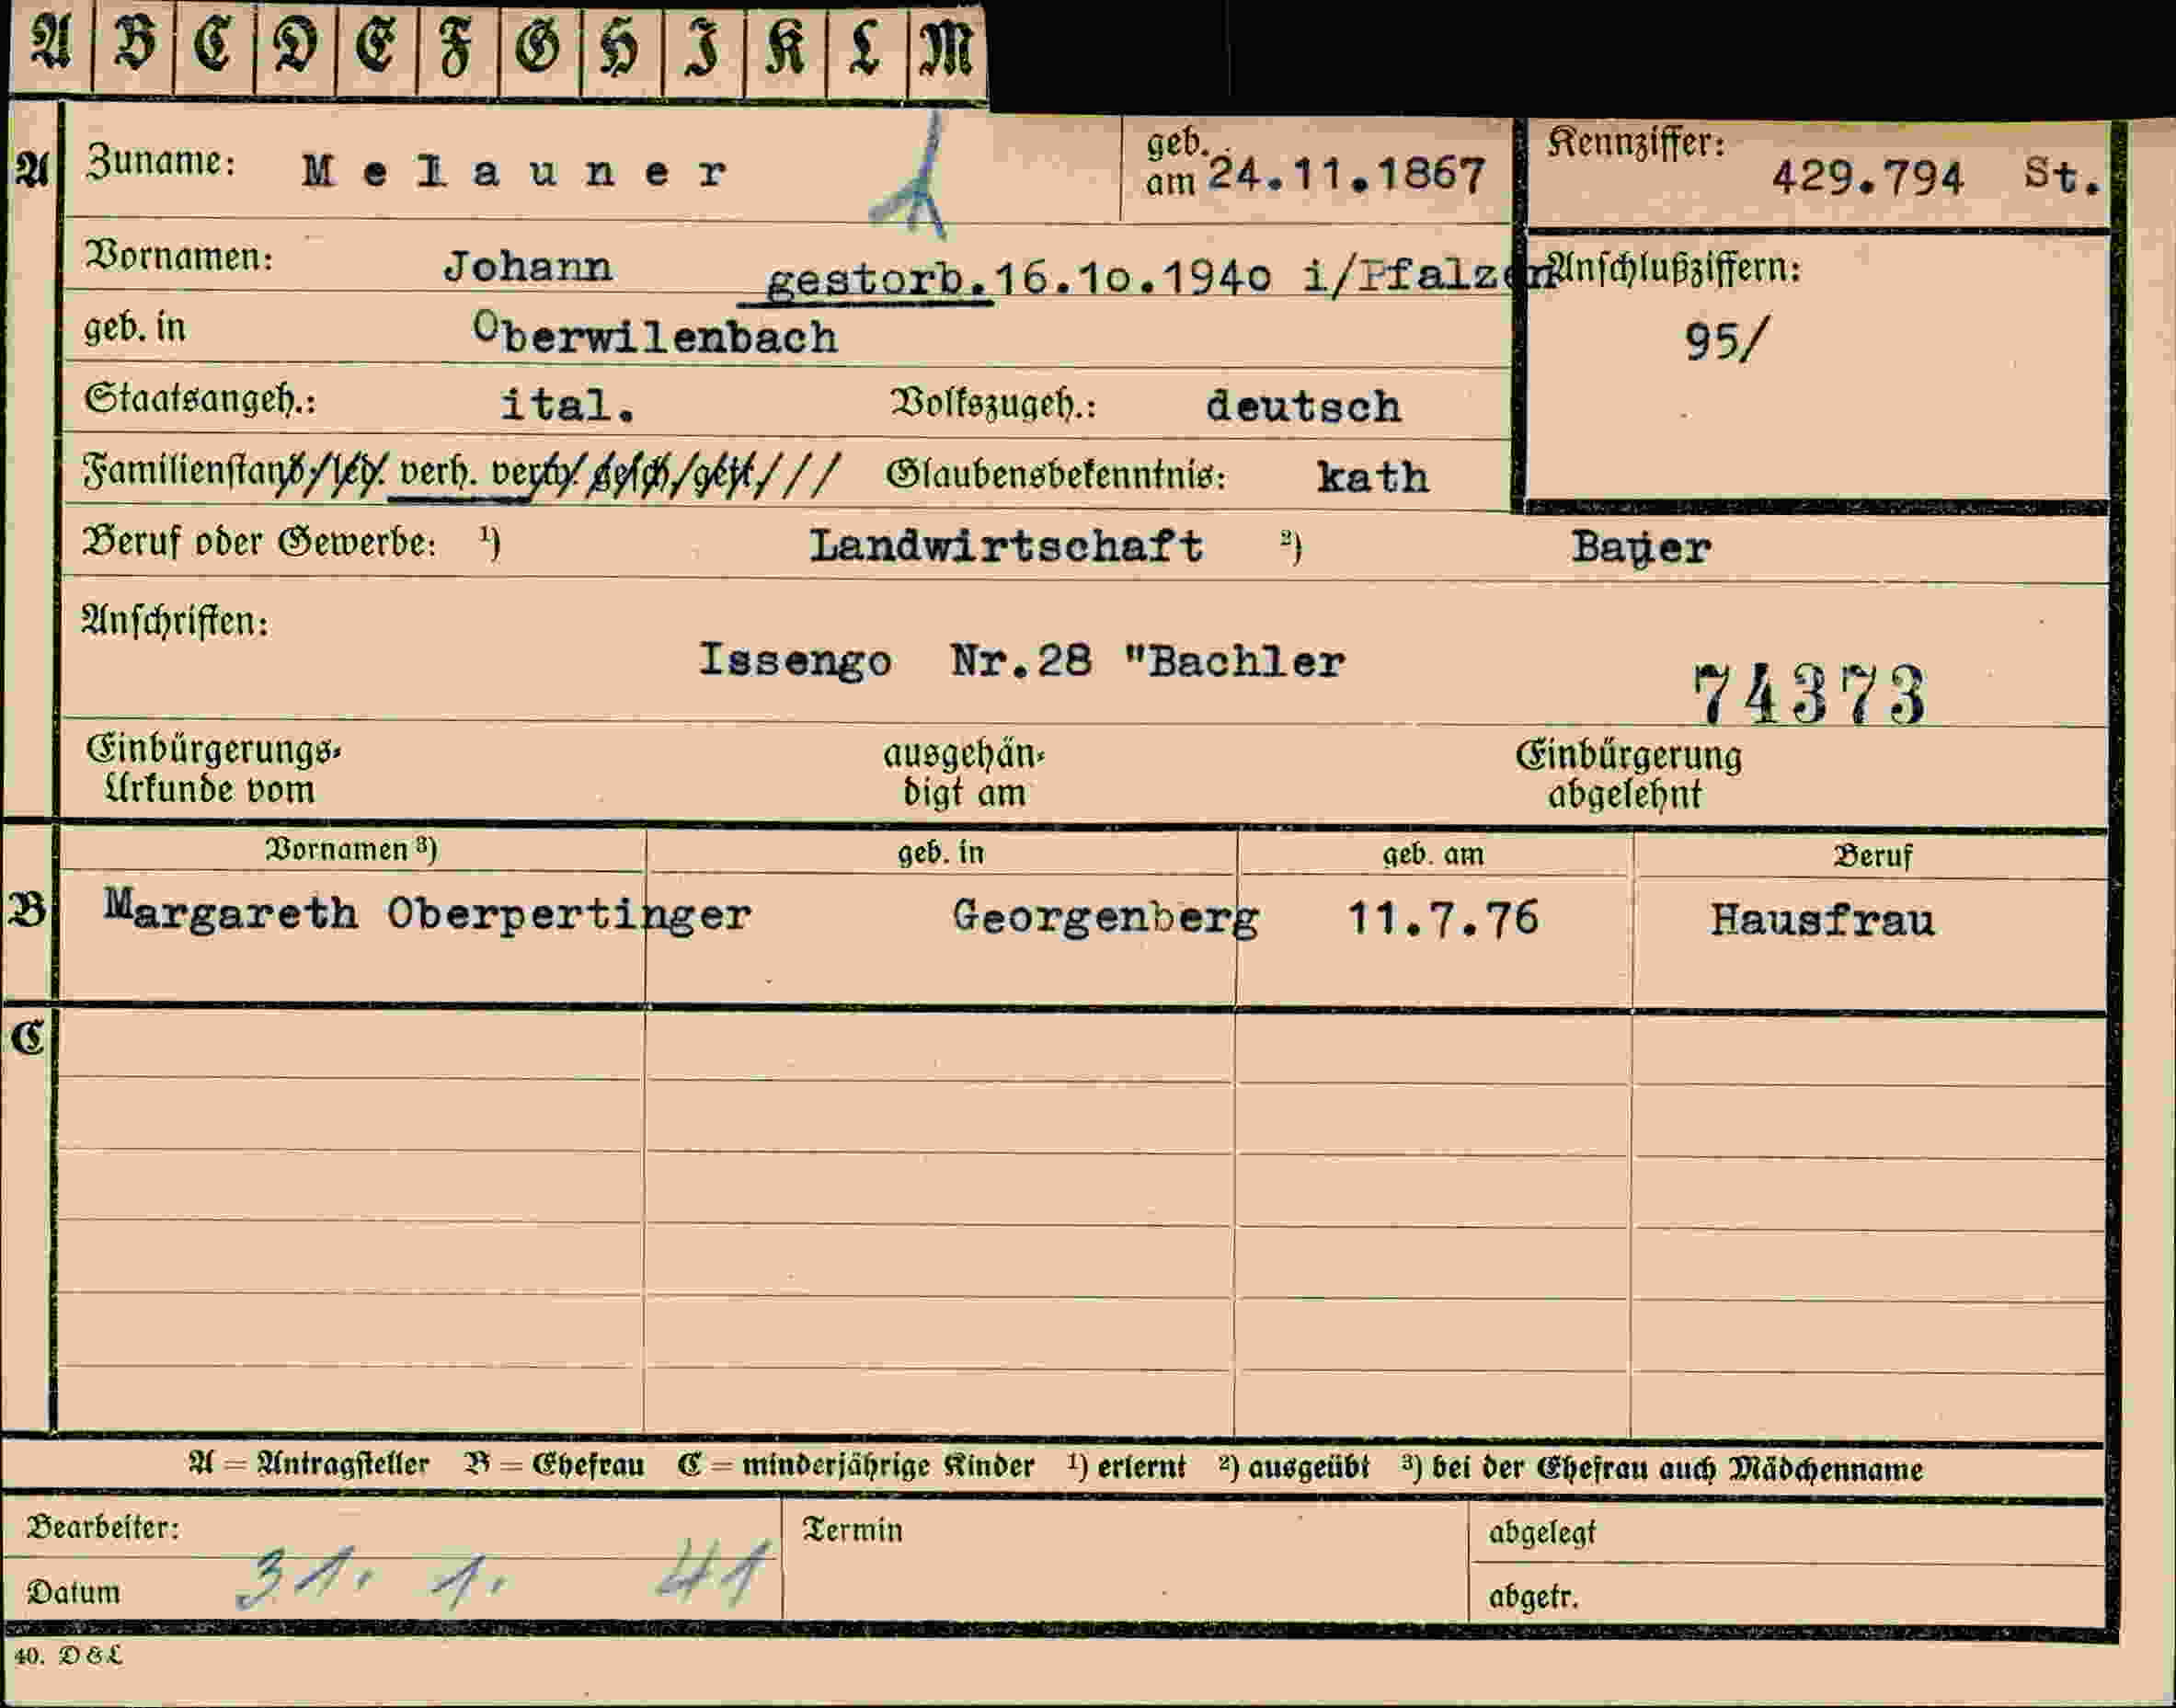 A B C D E F G H I K L M
A Zuname: Melauner geb. am 24.11.1867 Kennziffer: 429.794 St.
Vornamen: Johann gestorb.16.10.1940 i/Pfalzen Anschlußziffern:
geb. in Oberwilenbach 95/
Staatsangeh.: ital. Volkszugeh.: deutsch
Familienstand: led. verh. verw. gesch. getr. Glaubensbekenntnis: kath
Beruf oder Gewerbe: 1) Landwirtschaft 2) Bauer
Anschriften:
Issengo Nr.28 "Bachler
74373
Einbürgerungs- Urkunde vom ausgehän- digt am Einbürgerung abgelehnt
Vornamen 3) geb. in geb. am Beruf
B Margareth Oberpertinger Georgenberg 11.7.76 Hausfrau
C
A = Antragsteller B = Ehefrau C = minderjährige Kinder 1) erlernt 2) ausgeübt 3) bei der Ehefrau auch Mädchenname
Bearbeiter: Termin abgelegt
Datum 31. 1. 41 abgetr.
40. D & L